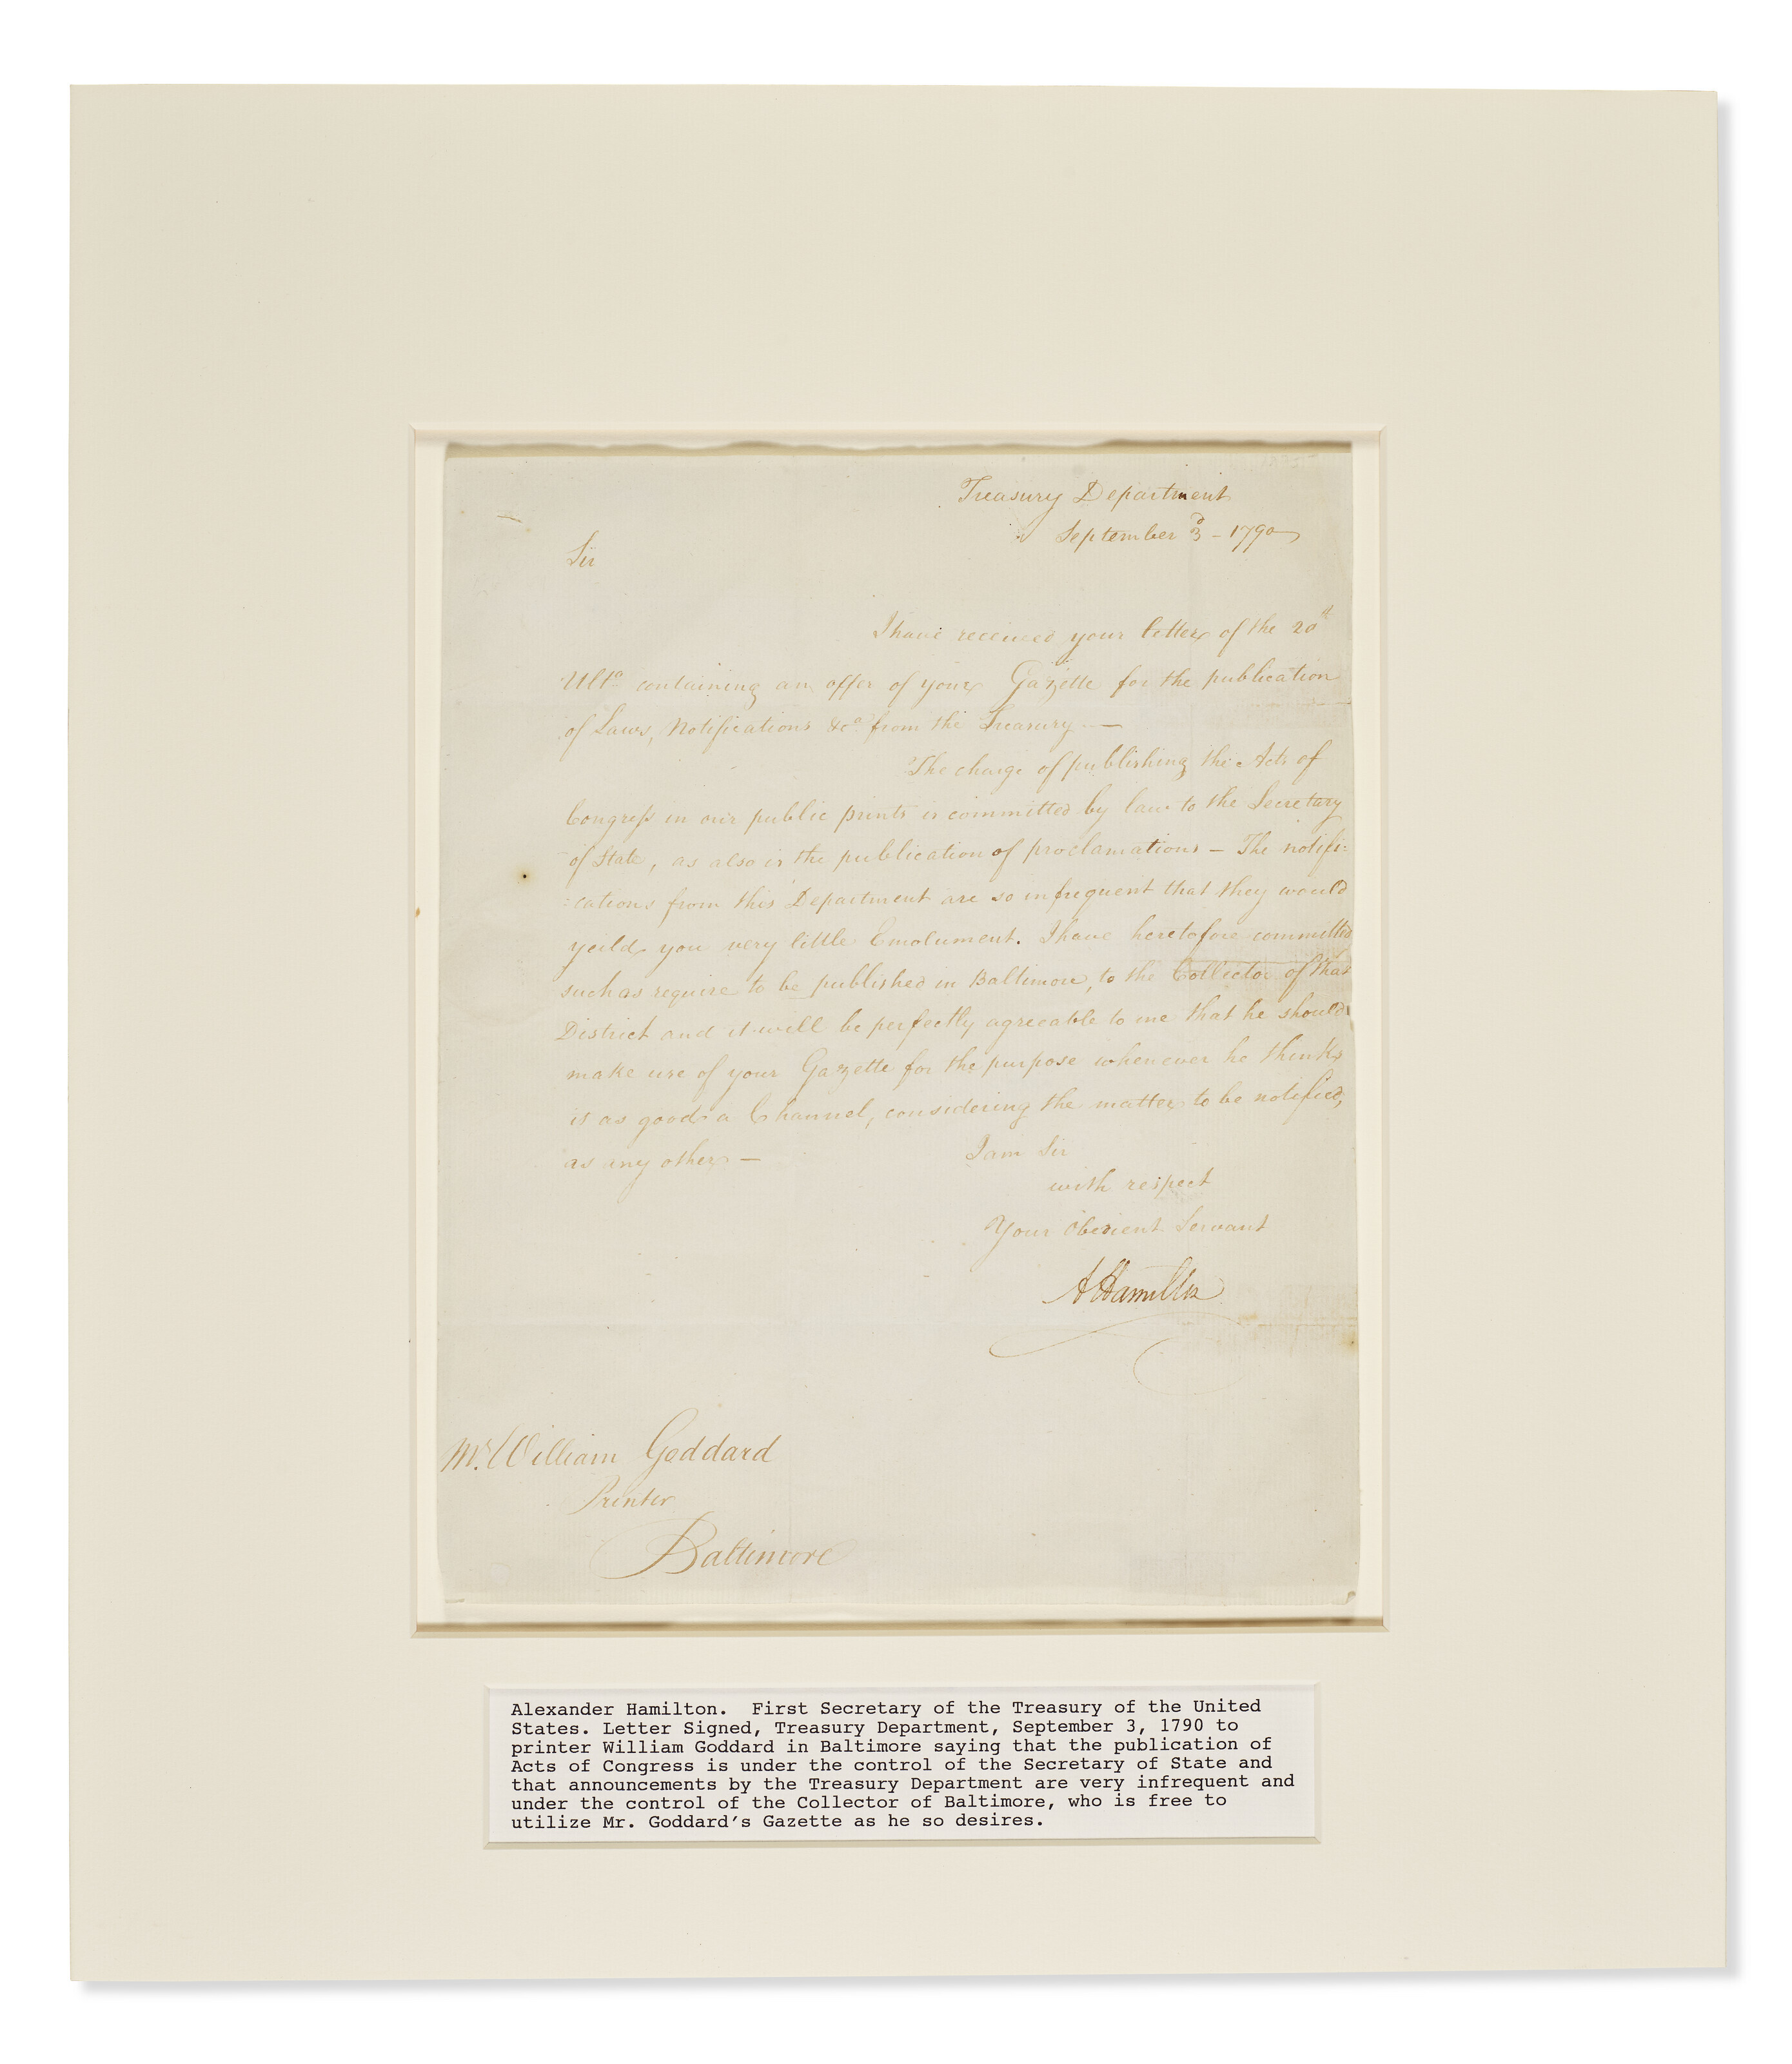 Treasury Department
September 3d - 1790
Sir
I have received your letter of the 20th
Ulto containing an offer of your Gazette for the publication
of Laws, Notifications &ca from the Treasury —
The charge of publishing the Acts of
Congress in our public prints is committed by law to the Secretary
of State, as also is the publication of proclamations — The notifi=
=cations from this Department are so infrequent that they would
yeild you very little Emolument. I have heretofore committed
such as require to be published in Baltimore, to the Collector of that
District and it will be perfectly agreeable to me that he should
make use of your Gazette for the purpose whenever he thinks
it as good a Channel, considering the matter to be notified,
as any other —
I am Sir
with respect
Your Obedient Servant
A Hamilton
Mr. William Goddard
Printer
Baltimore
Alexander Hamilton.  First Secretary of the Treasury of the United
States. Letter Signed, Treasury Department, September 3, 1790 to
printer William Goddard in Baltimore saying that the publication of
Acts of Congress is under the control of the Secretary of State and
that announcements by the Treasury Department are very infrequent and
under the control of the Collector of Baltimore, who is free to
utilize Mr. Goddard's Gazette as he so desires.